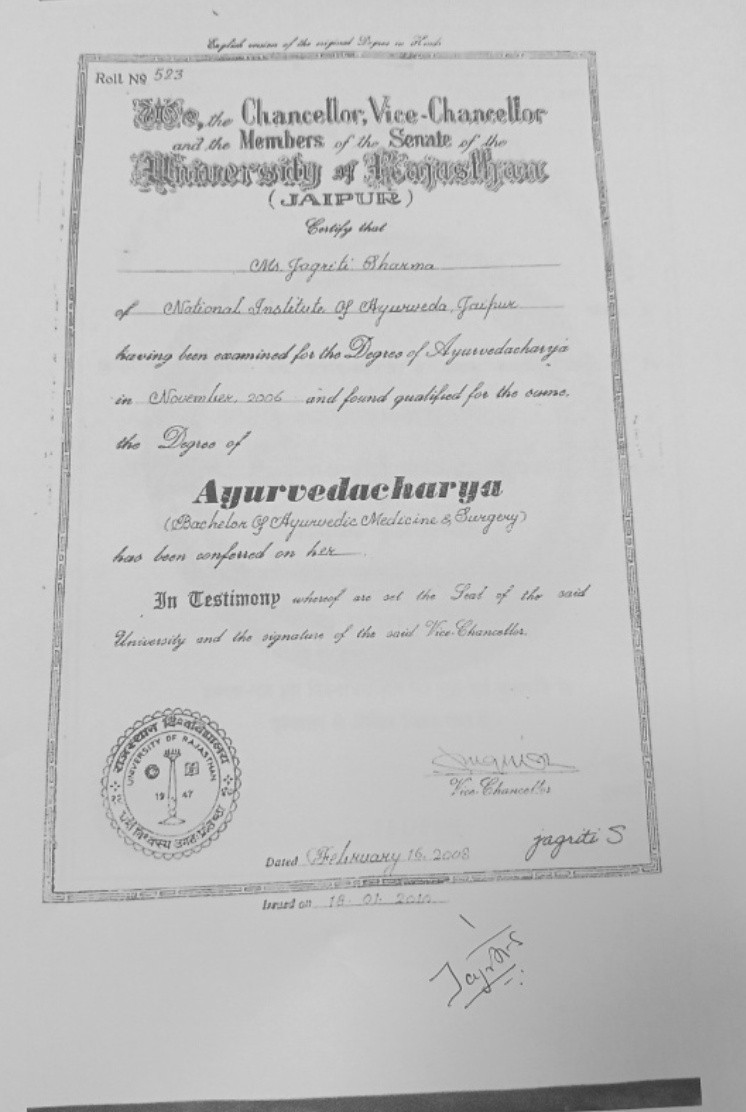 English version of the original Degree in Hindi
Roll No 523
We, the Chancellor, Vice-Chancellor
and the Members of the Senate of the
University of Rajasthan
(JAIPUR)
Certify that
Ms Jagriti Sharma
of National Institute Of Ayurveda, Jaipur
having been examined for the Degree of Ayurvedacharya
in November, 2006 and found qualified for the same,
the Degree of
Ayurvedacharya
(Bachelor Of Ayurvedic Medicine & Surgery)
has been conferred on her.
In Testimony whereof are set the Seal of the said
University and the signature of the said Vice-Chancellor.
राजस्थान विश्वविद्यालय
UNIVERSITY OF RAJASTHAN
1947
धर्मो विश्वस्य जगतः प्रतिष्ठा
Vice-Chancellor
jagriti S
Dated February 16, 2008
Issued on 18 01 2010